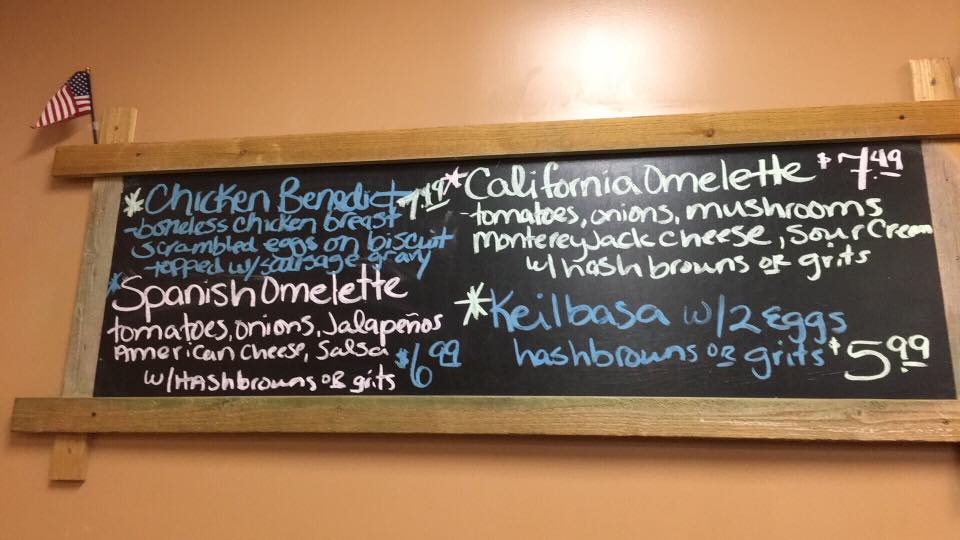 *Chicken Benedict 7.49
-boneless chicken breast
scrambled eggs on biscuit
-topped w/sausage gravy
*Spanish Omelette
tomatoes, onions, Jalapeños
American Cheese, Salsa $6.99
w/Hashbrowns or grits
*California Omelette $7.49
-tomatoes, onions, mushrooms
Monterey Jack cheese, Sour Cream
w/hash browns or grits
*Keilbasa w/2 Eggs
hashbrowns or grits $5.99